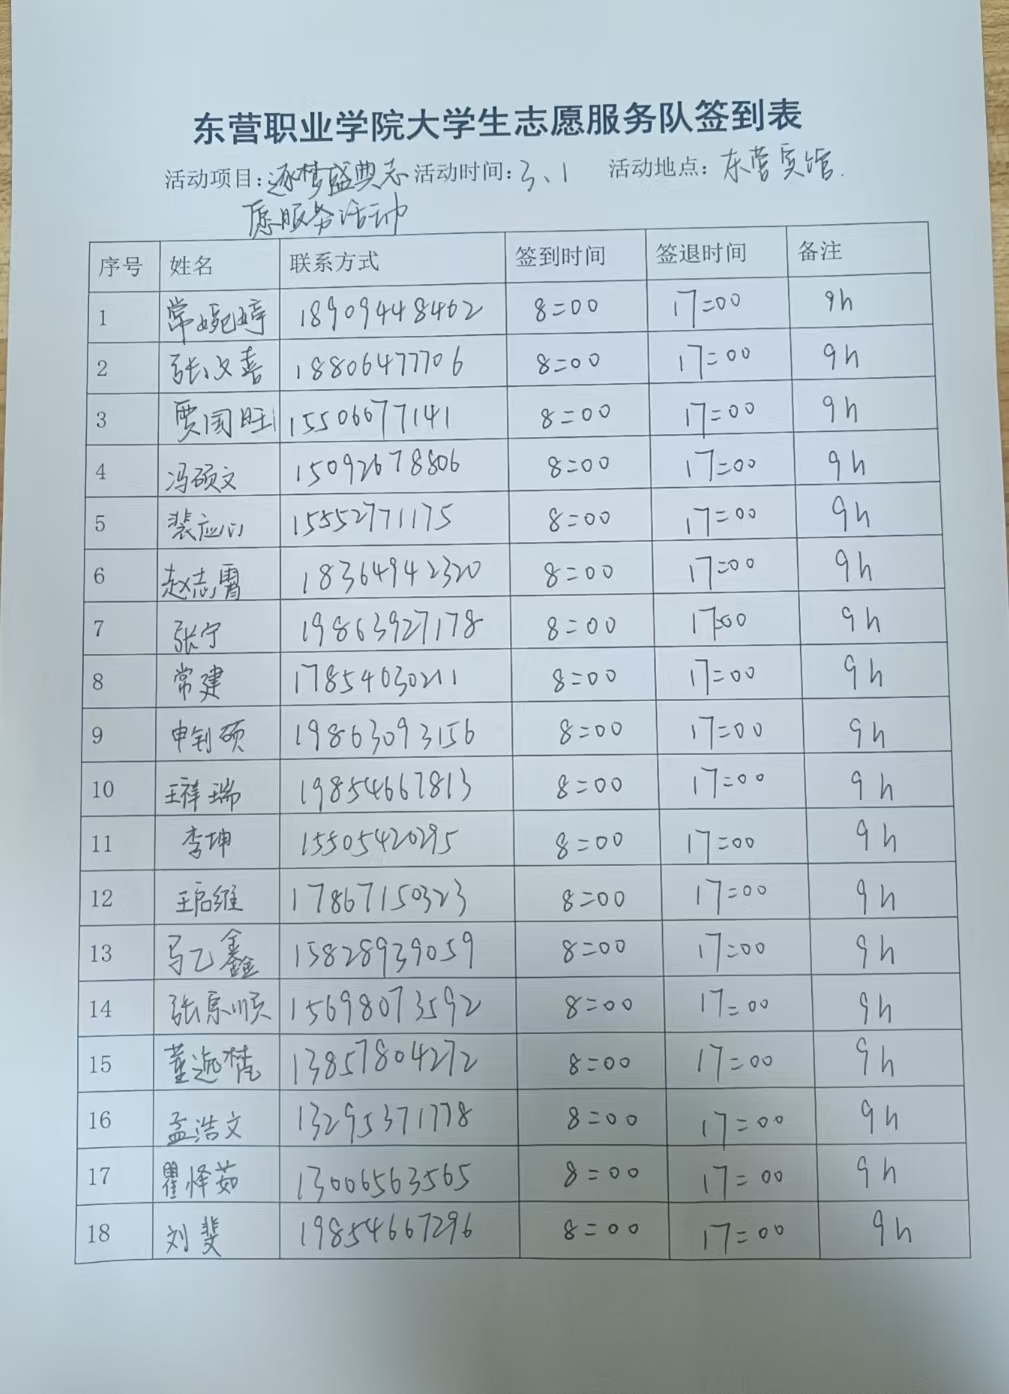 东营职业学院大学生志愿服务队签到表
活动项目：逐梦盛典志 活动时间：3、1 活动地点：东营宾馆.
愿服务活动
序号 姓名 联系方式 签到时间 签退时间 备注
1 常婉婷 18909448462 8=00 17=00 9h
2 张文喜 18806477706 8=00 17=00 9h
3 贾国旺 15506677141 8=00 17=00 9h
4 冯硕文 15092678806 8=00 17=00 9h
5 裴应 15552771175 8=00 17=00 9h
6 赵志霄 18364942320 8=00 17=00 9h
7 张宁 19863927178 8=00 17=00 9h
8 常建 17854030211 8=00 17=00 9h
9 申钊硕 19863093156 8=00 17=00 9h
10 王祥瑞 19854667813 8=00 17=00 9h
11 李坤 15505420295 8=00 17=00 9h
12 王启维 17867150323 8=00 17=00 9h
13 马乙鑫 15828939059 8=00 17=00 9h
14 张原顺 15698073592 8=00 17=00 9h
15 董 13857804272 8=00 17=00 9h
16 孟浩文 13295371778 8=00 17=00 9h
17 瞿怿茹 13006563565 8=00 17=00 9h
18 刘斐 19854667296 8=00 17=00 9h